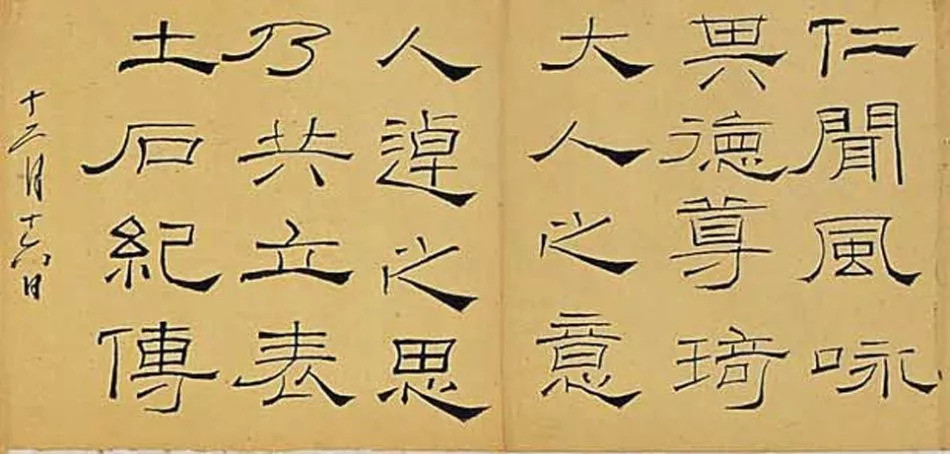 仁聞風咏
異徳尊琦
大人之意
人逴之思
乃共立表
土石紀傳
十二月十六日